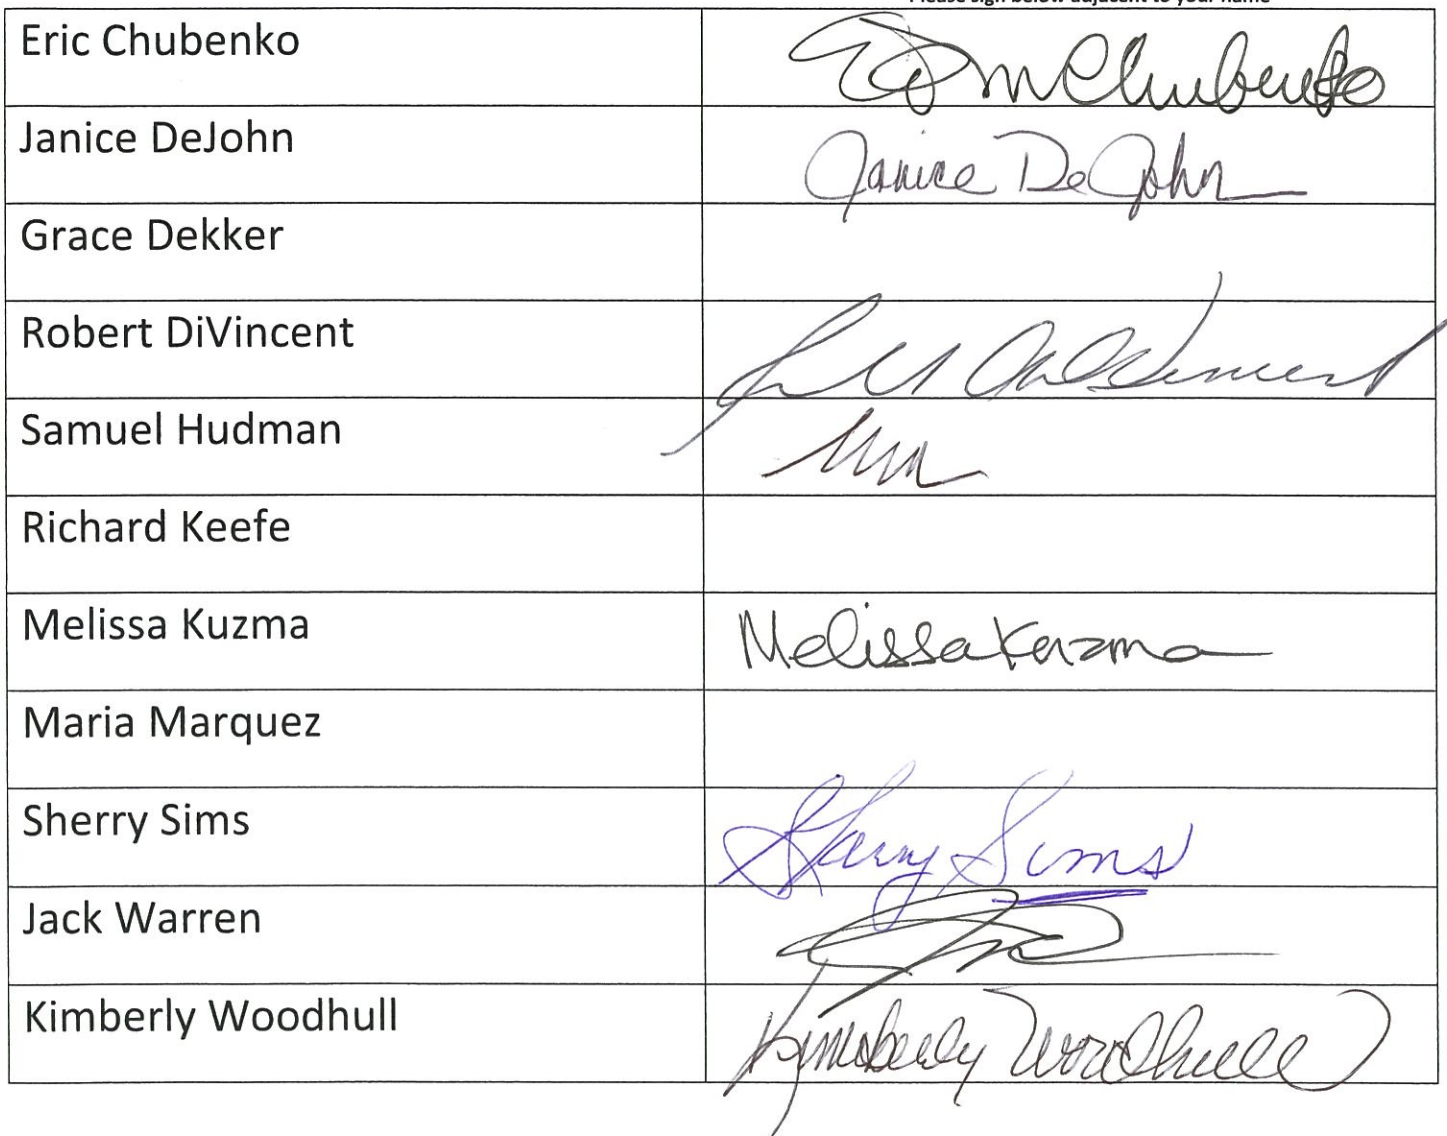 Please sign below adjacent to your name
Eric Chubenko Eric M Chubenko
Janice DeJohn Janice DeJohn
Grace Dekker
Robert DiVincent
Samuel Hudman
Richard Keefe
Melissa Kuzma Melissa Kuzma
Maria Marquez
Sherry Sims Sherry Sims
Jack Warren
Kimberly Woodhull Kimberly Woodhull